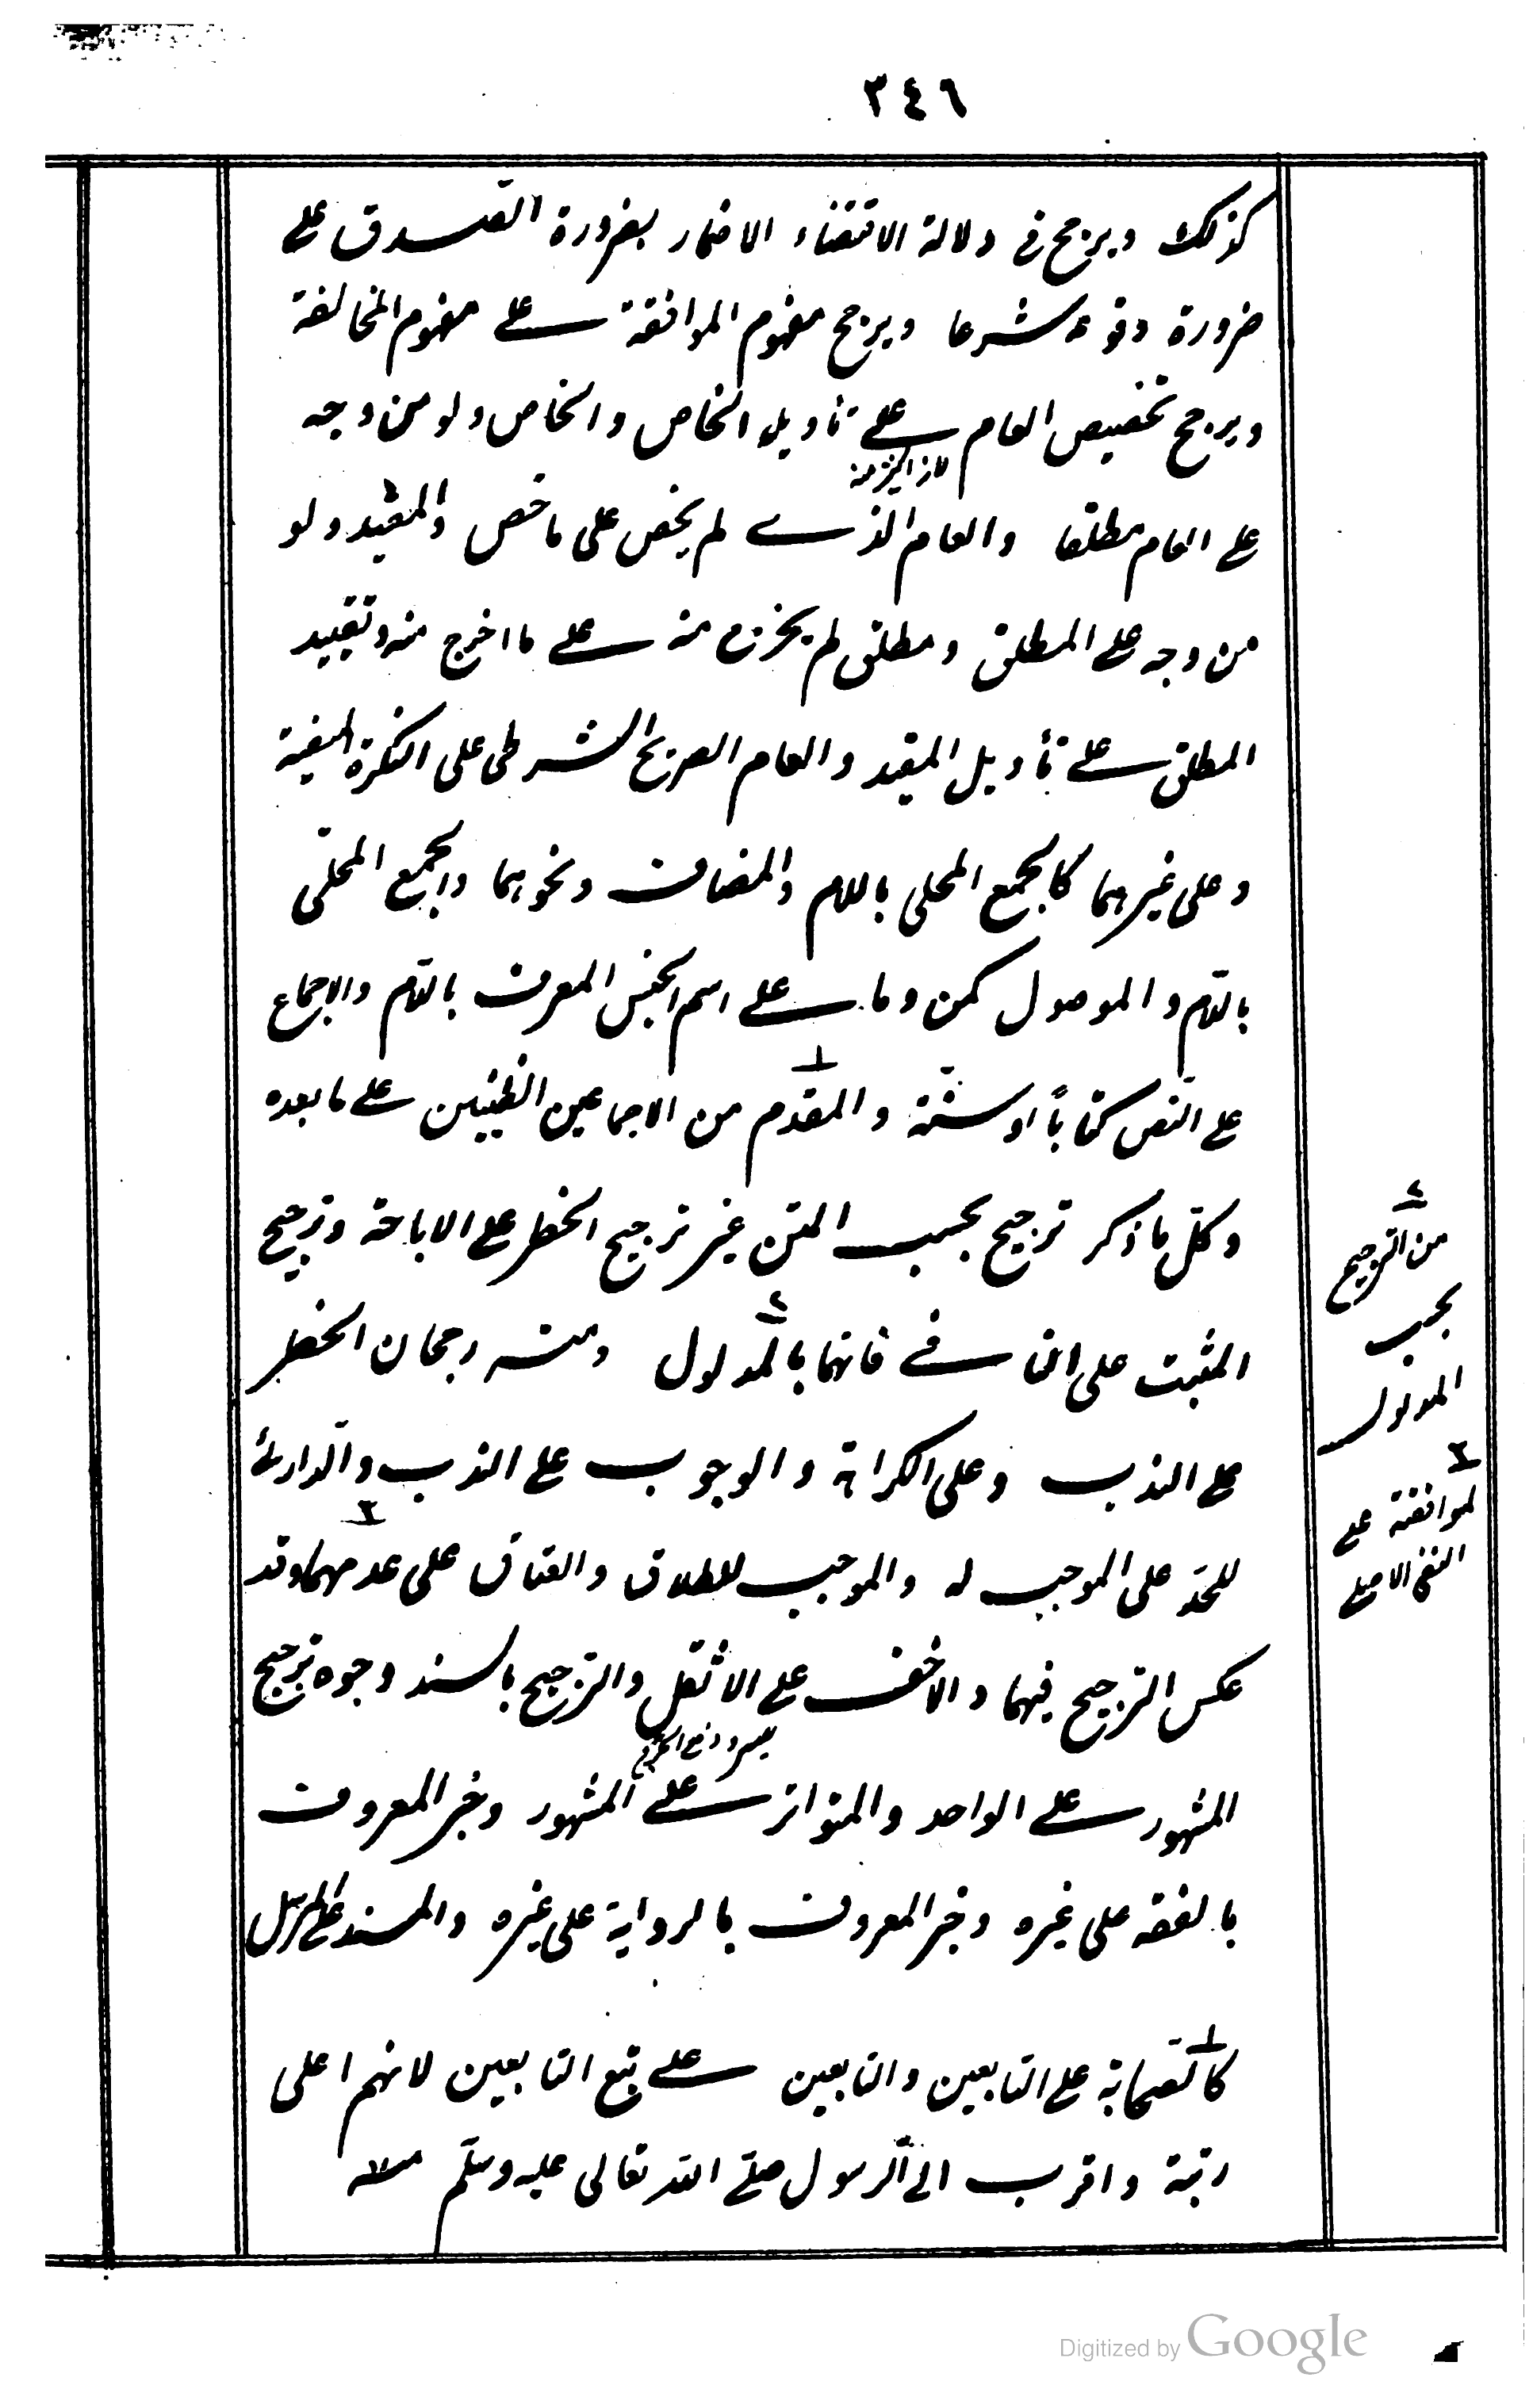 ٣٤٦
كذلك ويرجح فى دلالة الاقتضاء الاضمار بضرورة الصدق على
ضرورة وقوعه شرعا ويرجح مفهوم الموافقة على مفهوم المخالفة
ويرجح تخصيص العام على تأويل الخاص والخاص ولو من وجه
على العام مطلقا والعام الذى لم يخص على ما خص والمقيد ولو
من وجه على المطلق ومطلق لم يخرج منه على ما اخرج منه وتقييد
المطلق على تأويل المقيد والعام الصريح الشرطى على النكرة المنفية
وعلى غيرهما كالجمع المحلى باللام والمضاف ونحوهما والجمع المحلّى
باللام والموصول كمن وما على اسم الجنس المعرف باللام والاجماع
على النص كتاباً او سنّة والمقدم من الاجماعين الظنيين على ما بعده
وكلّ ما ذكر ترجيح بحسب المتن غير ترجيح الحظر على الاباحة وترجيح
المثبت على النافى فانهما بالمدلول ومنه رجحان الحظر
على الندب وعلى الكراهة والوجوب على الندب والدارئ
للحدّ على الموجب له والموجب للطلاق والعتاق على عدمهما وقد
عكس الترجيح فيهما والاخف على الاثقل والترجيح بالسند وجوه ترجيح
المشهور على الواحد والمتواتر على المشهور وخبر المعروف
بالفقه على غيره وخبر المعروف بالرواية على غيره والمسند على المرسل
١
كالصحابة على التابعين والتابعين على تبع التابعين لانهم اعلى
رتبة واقرب الى الرسول صلّى الله تعالى عليه وسلّم منه
٢
من الترجيح
بحسب
المدلول
٣
لموافقته على
النفى الاصلى
Digitized by Google